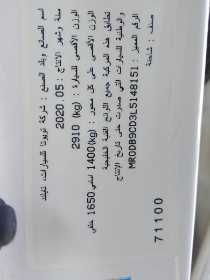 اسم الصانع وبلد الصنع : شركة تويوتا للسيارات، تايلند
سنة وشهر الانتاج : 2020.05
الوزن الأقصى للسيارة : 2910 (kg)
الوزن الأقصى على كل محور : 1400(kg) أمامي 1650 خلفي
تطابق هذه المركبة جميع اللوائح الفنية الخليجية
والوطنية للسيارات التي صدرت حتى تاريخ الإنتاج
الرقم المميز : MR0DB9CD3L5148151
صنف : شاحنة
71100